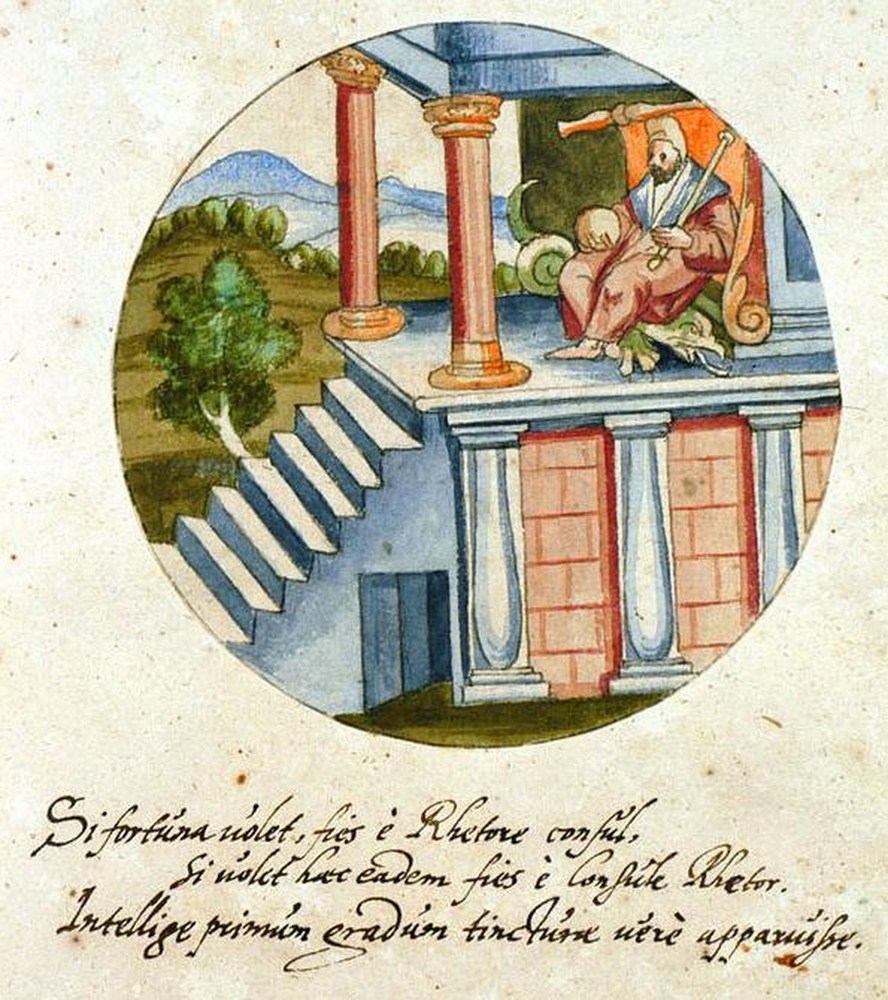 Si fortuna uolet, fies è Rhetore consul,
Si uolet hæc eadem fies è Consule Rhetor.
Intellige primum gradum tincturæ uerè apparuisse.